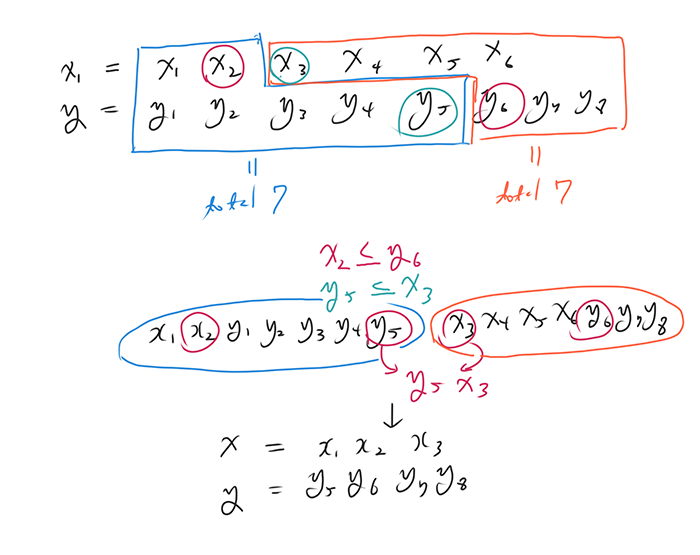 x₁ = x₁ x₂ x₃ x₄ x₅ x₆
y = y₁ y₂ y₃ y₄ y₅ y₆ y₇ y₈
= =
total 7 total 7
x₂ ≤ y₆
y₅ ≤ x₃
x₁ x₂ y₁ y₂ y₃ y₄ y₅ x₃ x₄ x₅ x₆ y₆ y₇ y₈
y₅ x₃
↓
x = x₁ x₂ x₃
y = y₅ y₆ y₇ y₈